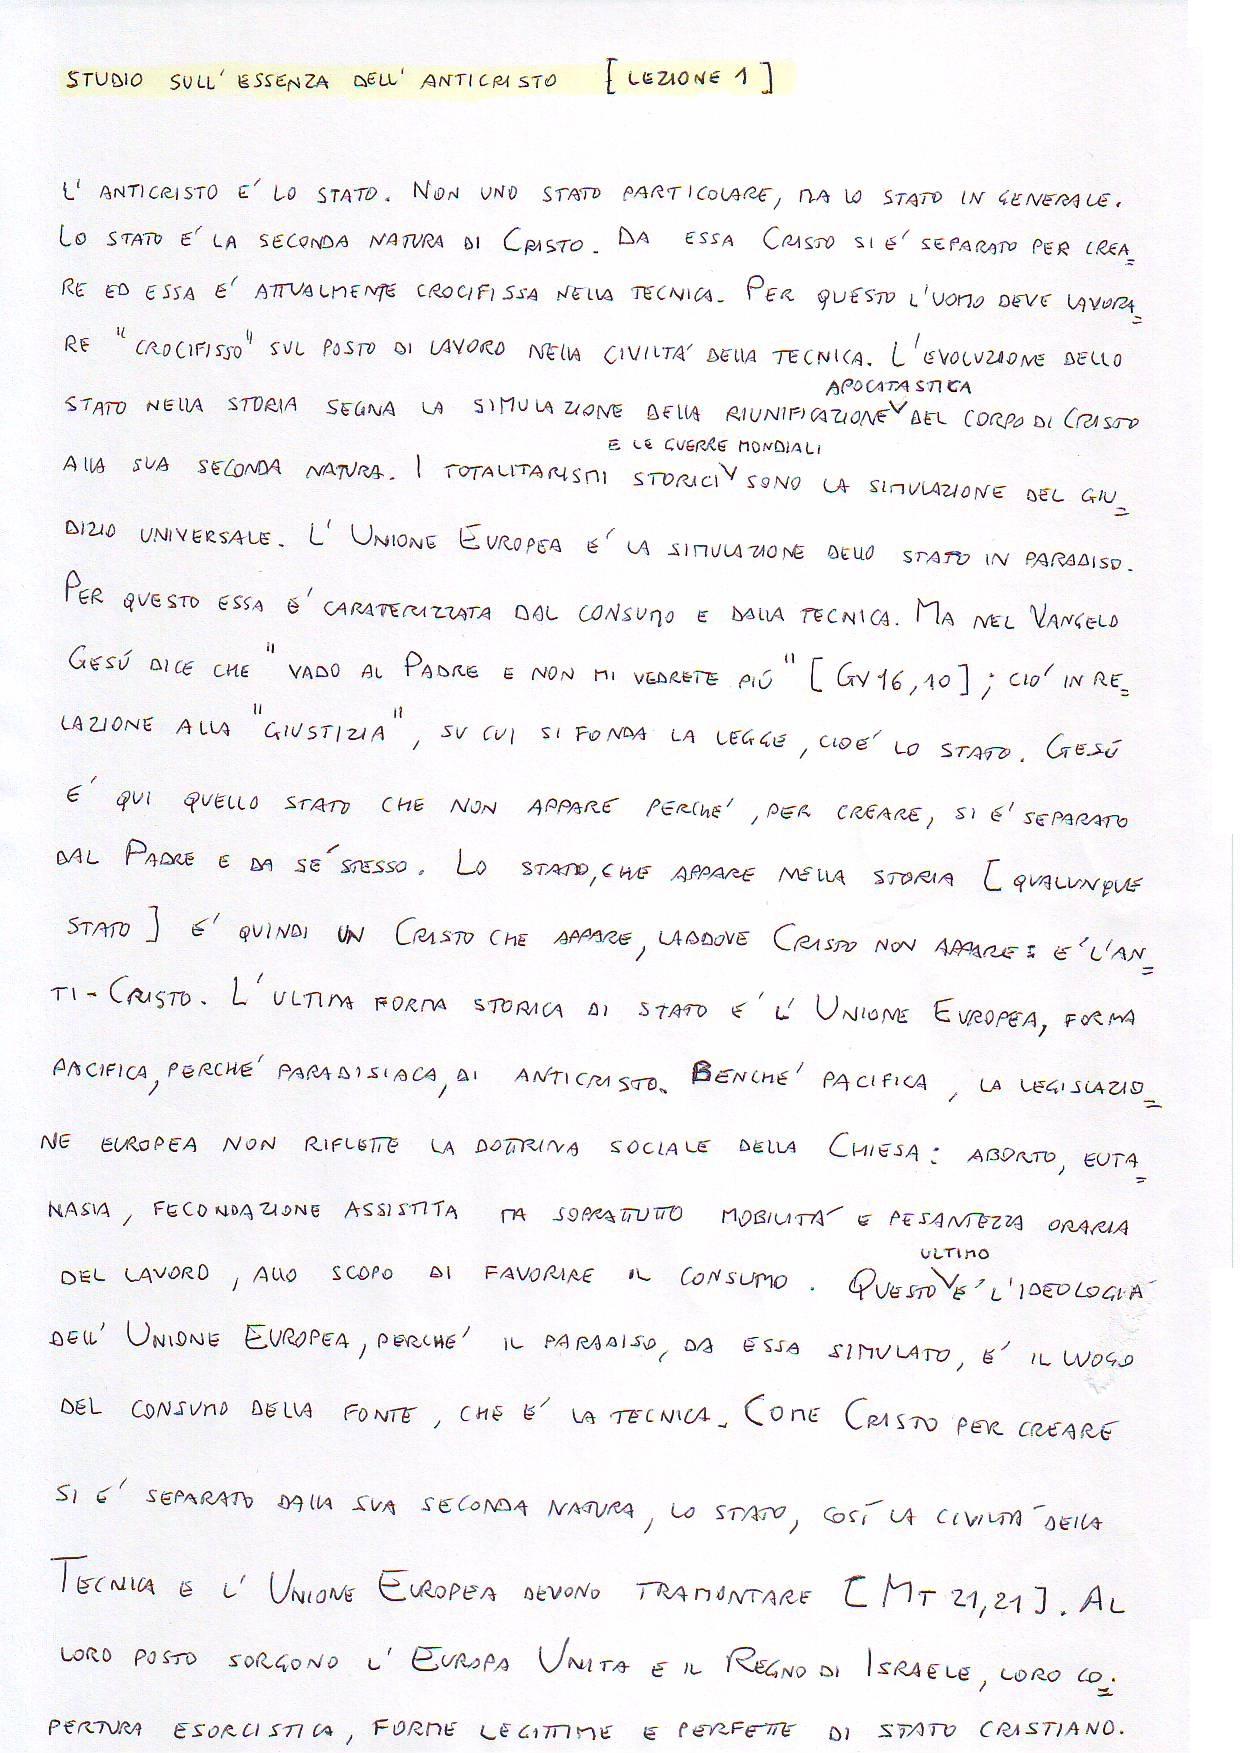 STUDIO SULL'ESSENZA DELL'ANTICRISTO [LEZIONE 1]
L'ANTICRISTO E' LO STATO. NON UNO STATO PARTICOLARE, MA LO STATO IN GENERALE.
LO STATO E' LA SECONDA NATURA DI CRISTO. DA ESSA CRISTO SI E' SEPARATO PER CREA=
RE ED ESSA E' ATTUALMENTE CROCIFISSA NELLA TECNICA. PER QUESTO L'UOMO DEVE LAVORA=
RE "CROCIFISSO" SUL POSTO DI LAVORO NELLA CIVILTA' DELLA TECNICA. L'EVOLUZIONE DELLO
APOCATASTICA
STATO NELLA STORIA SEGNA LA SIMULAZIONE DELLA RIUNIFICAZIONE DEL CORPO DI CRISTO
E LE GUERRE MONDIALI
ALLA SUA SECONDA NATURA. I TOTALITARISMI STORICI SONO LA SIMULAZIONE DEL GIU=
DIZIO UNIVERSALE. L'UNIONE EUROPEA E' LA SIMULAZIONE DELLO STATO IN PARADISO.
PER QUESTO ESSA E' CARATERIZZATA DAL CONSUMO E DALLA TECNICA. MA NEL VANGELO
GESÚ DICE CHE "VADO AL PADRE E NON MI VEDRETE PIÚ" [GV 16,10]; CIO' IN RE=
LAZIONE ALLA "GIUSTIZIA", SU CUI SI FONDA LA LEGGE, CIOE' LO STATO. GESÚ
E' QUI QUELLO STATO CHE NON APPARE PERCHE', PER CREARE, SI E' SEPARATO
DAL PADRE E DA SE' STESSO. LO STATO, CHE APPARE NELLA STORIA [QUALUNQUE
STATO] E' QUINDI UN CRISTO CHE APPARE, LADDOVE CRISTO NON APPARE: E' L'AN=
TI-CRISTO. L'ULTIMA FORMA STORICA DI STATO E' L'UNIONE EUROPEA, FORMA
PACIFICA, PERCHE' PARADISIACA, DI ANTICRISTO. BENCHE' PACIFICA, LA LEGISLAZIO=
NE EUROPEA NON RIFLETTE LA DOTTRINA SOCIALE DELLA CHIESA: ABORTO, EUTA=
NASIA, FECONDAZIONE ASSISTITA MA SOPRATTUTTO MOBILITA' E PESANTEZZA ORARIA
ULTIMO
DEL LAVORO, ALLO SCOPO DI FAVORIRE IL CONSUMO. QUESTO E' L'IDEOLOGIA
DELL'UNIONE EUROPEA, PERCHE' IL PARADISO, DA ESSA SIMULATO, E' IL LUOGO
DEL CONSUMO DELLA FONTE, CHE E' LA TECNICA. COME CRISTO PER CREARE
SI E' SEPARATO DALLA SUA SECONDA NATURA, LO STATO, COSÍ LA CIVILTA' DELLA
TECNICA E L'UNIONE EUROPEA DEVONO TRAMONTARE [MT 21,21]. AL
LORO POSTO SORGONO L'EUROPA UNITA E IL REGNO DI ISRAELE, LORO CO=
PERTURA ESORCISTICA, FORME LEGITTIME E PERFETTE DI STATO CRISTIANO.